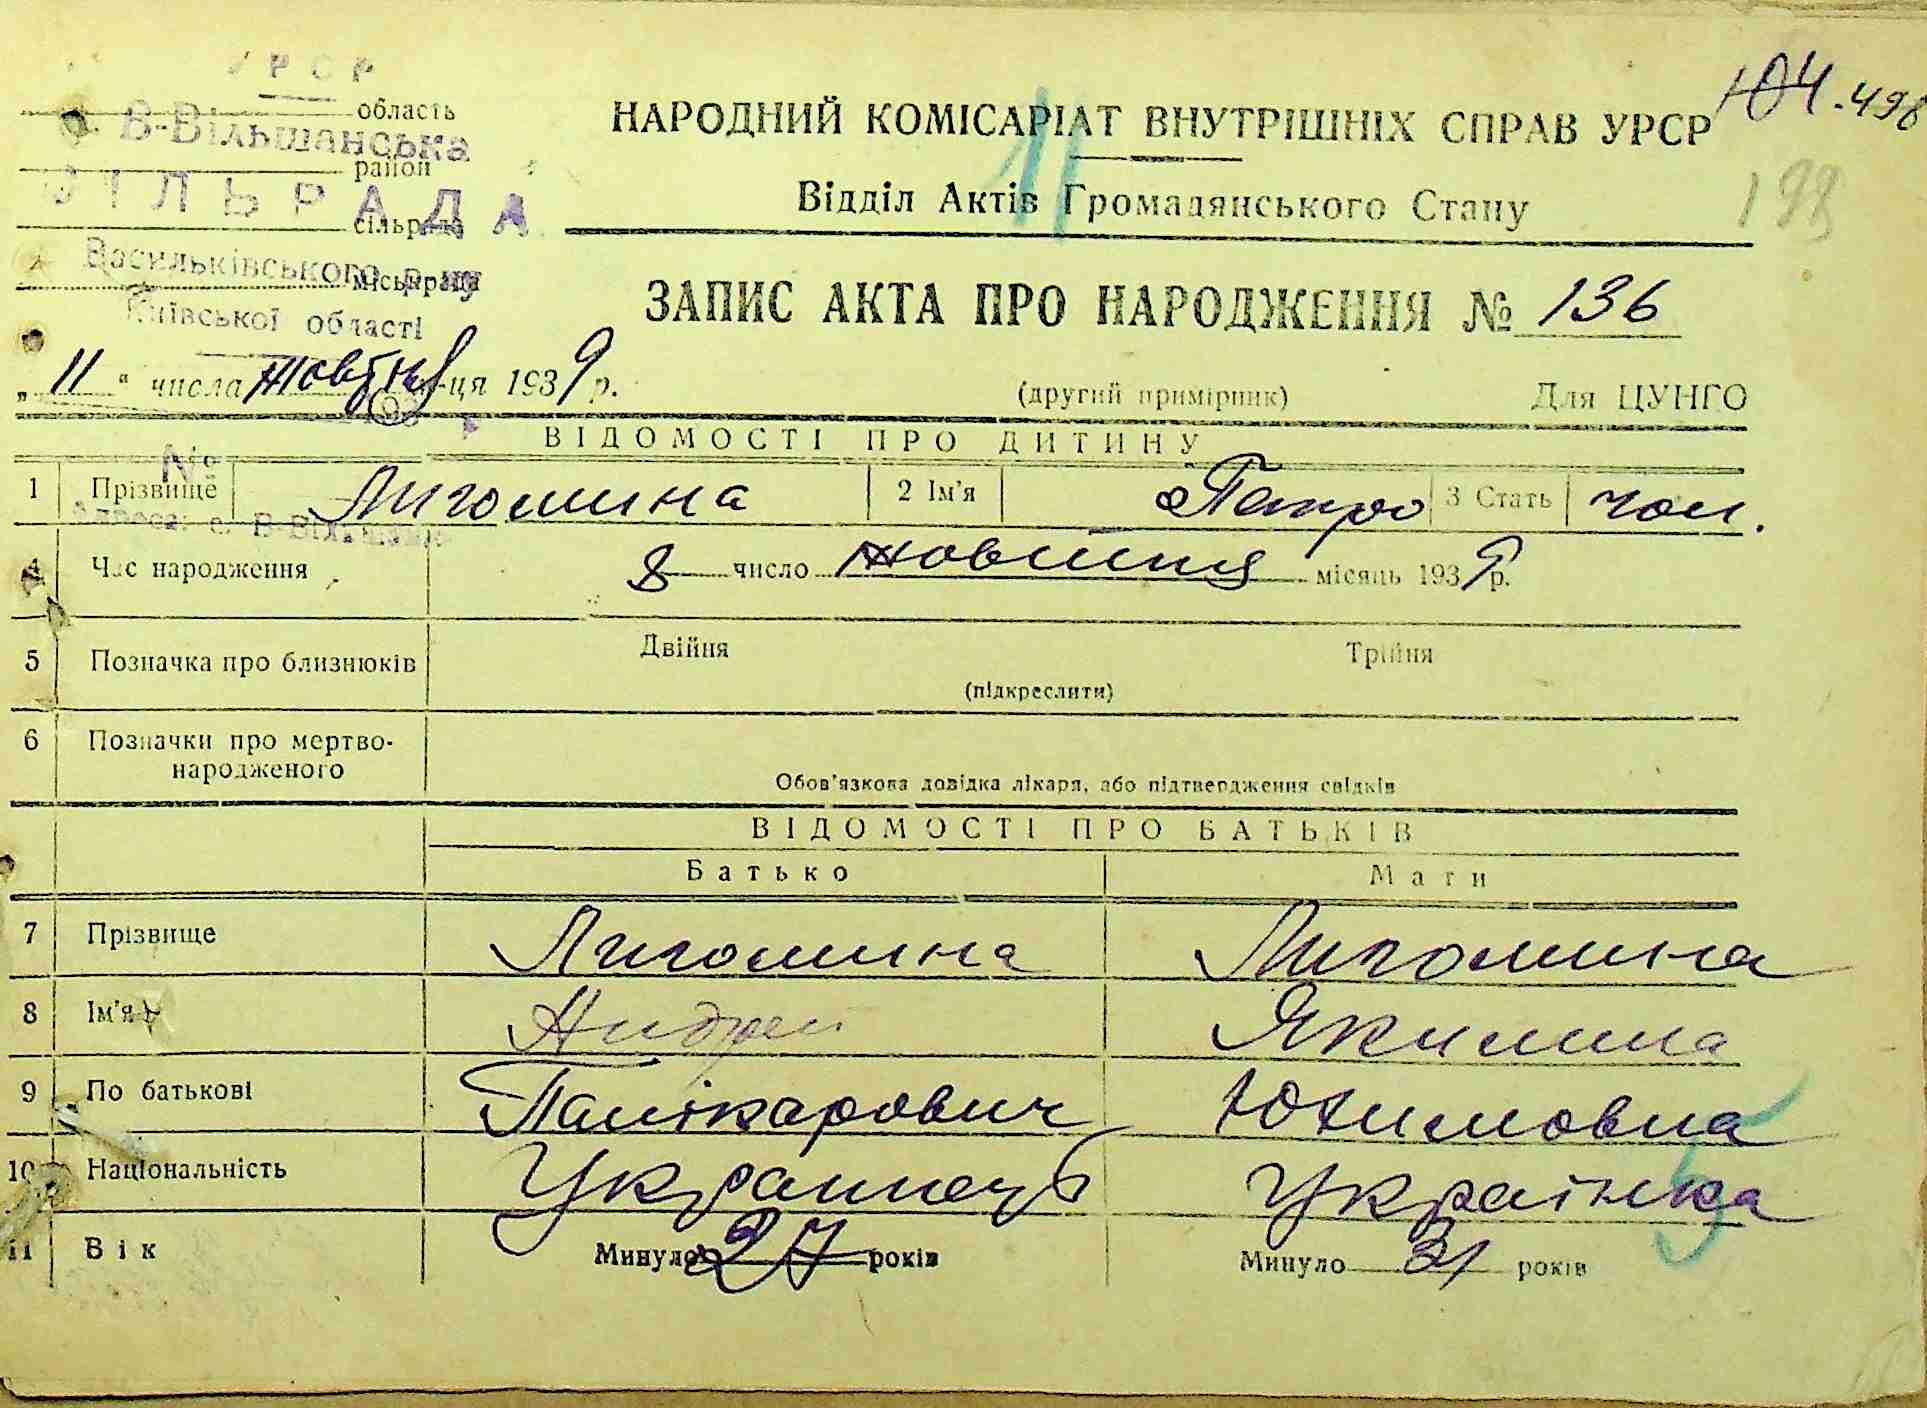 УРСР
область
В-Вільшанська
район
СІЛЬРАДА
сільрада
Васильківського р-ну
міськрада
Київської області
104-498
198
11
НАРОДНИЙ КОМІСАРІАТ ВНУТРІШНІХ СПРАВ УРСР
Відділ Актів Громадянського Стану
ЗАПИС АКТА ПРО НАРОДЖЕННЯ № 136
„11“ числа жовтня м-ця 1939 р.
(другий примірник) Для ЦУНГО
ВІДОМОСТІ ПРО ДИТИНУ
№
1 Прізвище Лигомина 2 Ім'я Петро 3 Стать чол.
Адреса: с. В-Вільшанка
4 Час народження 8 число жовтня місяць 1939 р.
5 Позначка про близнюків Двійня Трійня
(підкреслити)
6 Позначки про мертво-
народженого
Обов'язкова довідка лікаря, або підтвердження свідків
ВІДОМОСТІ ПРО БАТЬКІВ
Батько Мати
7 Прізвище Лигомина Лигомина
8 Ім'я Андрей Якилина
9 По батькові Полікарович Юхимовна
10 Національність Украинець Українка
11 Вік Минуло 27 років Минуло 31 років